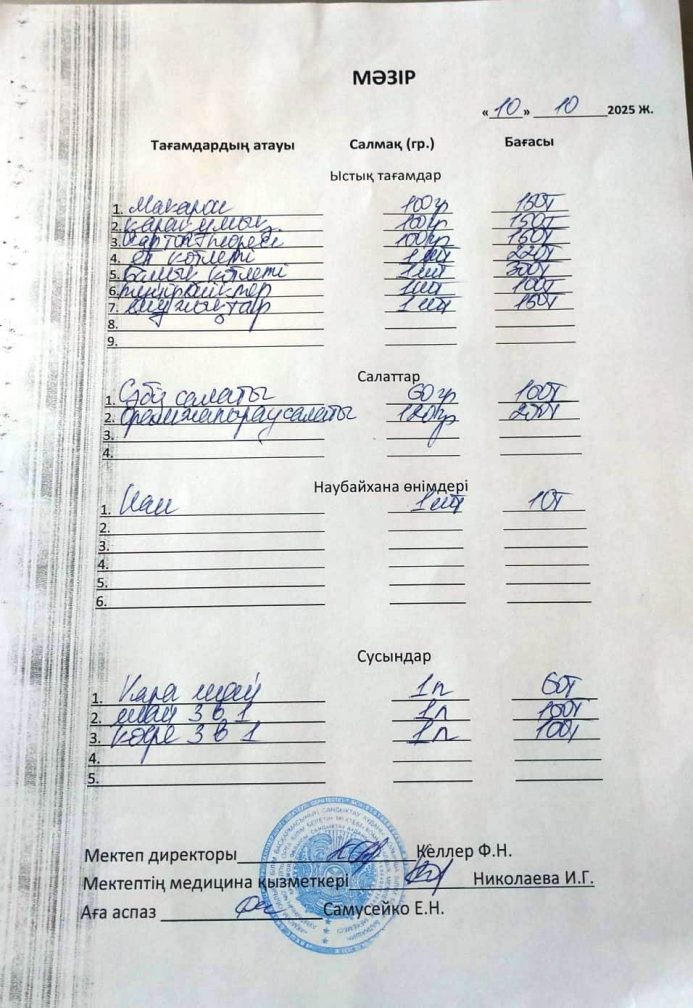 МӘЗІР
«10» 10 2025 Ж.
Тағамдардың атауы Салмақ (гр.) Бағасы
Ыстық тағамдар
1. Макарон 100гр 150т
2. қарақұмық 100гр 150т
3. Картоп пюресі 100гр 150т
4. ет котлеті 1 шт 220т
5. Балық котлеті 1 шт 300т
6. 1шт 100т
7. 1 шт 150т
8.
9.
Салаттар
1. Сәбіз салаты 60 гр 100т
2. салаты 120гр
3.
4.
Наубайхана өнімдері
1. Нан 1 шт 10т
2.
3.
4.
5.
6.
Сусындар
1. Кара шай 1п 60т
2. шай 3 в 1 1п 100т
3. кофе 3 в 1 1п 100т
4.
5.
Мектеп директоры Келлер Ф.Н.
Мектептің медицина қызметкері Николаева И.Г.
Аға аспаз Самусейко Е.Н.